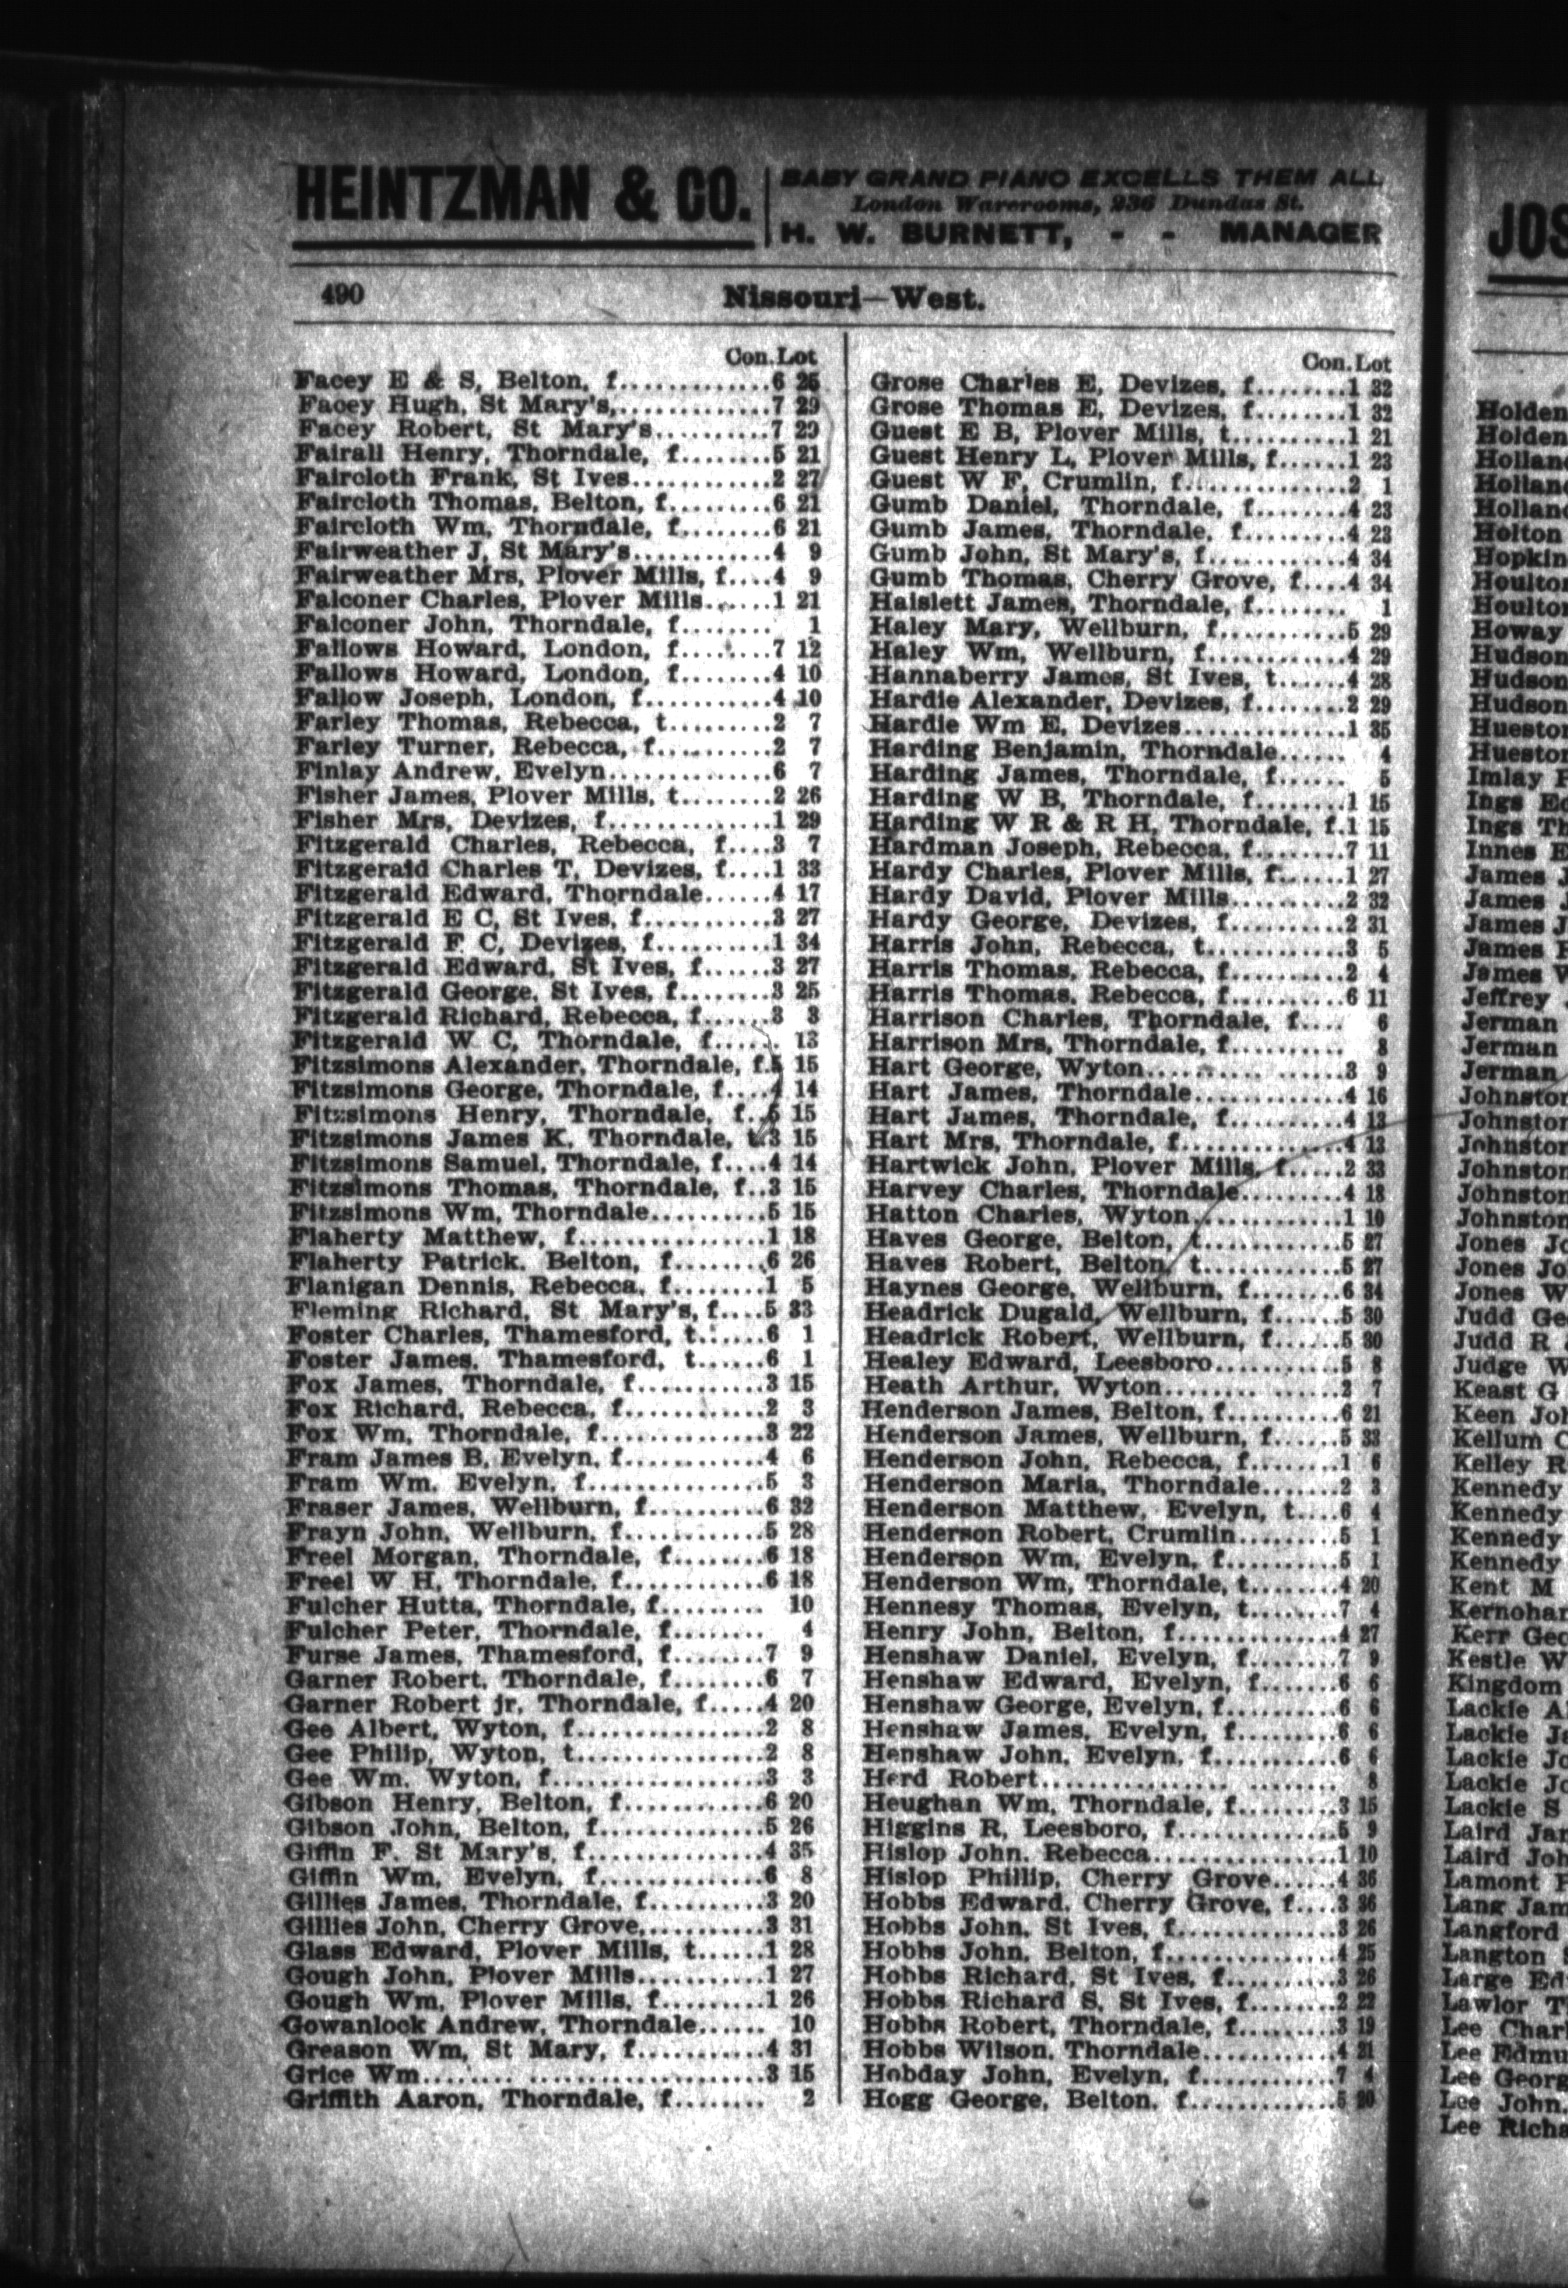 HEINTZMAN & CO.
BABY GRAND PIANO EXCELLS THEM ALL
London Warerooms, 236 Dundas St.
H. W. BURNETT, - - MANAGER
490
Nissouri—West.
Con. Lot
Facey E & S, Belton, f.............6 26
Facey Hugh, St Mary's,..............7 29
Facey Robert, St Mary's..........7 29
Fairall Henry, Thorndale, f........5 21
Faircloth Frank, St Ives............2 27
Faircloth Thomas, Belton, f.........6 21
Faircloth Wm, Thorndale, f........6 21
Fairweather J, St Mary's............4 9
Fairweather Mrs, Plover Mills, f....4 9
Falconer Charles, Plover Mills......1 21
Falconer John, Thorndale, f........ 1
Fallows Howard, London, f........7 12
Fallows Howard, London, f........4 10
Fallow Joseph, London, f...........4 10
Farley Thomas, Rebecca, t.........2 7
Farley Turner, Rebecca, f..........2 7
Finlay Andrew, Evelyn..............6 7
Fisher James, Plover Mills, t........2 26
Fisher Mrs, Devizes, f..............1 29
Fitzgerald Charles, Rebecca, f....3 7
Fitzgerald Charles T, Devizes, f....1 33
Fitzgerald Edward, Thorndale......4 17
Fitzgerald E C, St Ives, f...........3 27
Fitzgerald F C, Devizes, f..........1 34
Fitzgerald Edward, St Ives, f......3 27
Fitzgerald George, St Ives, f........3 25
Fitzgerald Richard, Rebecca, f......3 3
Fitzgerald W C, Thorndale, f...... 13
Fitzsimons Alexander, Thorndale, f.5 15
Fitzsimons George, Thorndale, f....4 14
Fitzsimons Henry, Thorndale, f..5 15
Fitzsimons James K, Thorndale, t.3 15
Fitzsimons Samuel, Thorndale, f....4 14
Fitzsimons Thomas, Thorndale, f..3 15
Fitzsimons Wm, Thorndale..........5 15
Flaherty Matthew, f................1 18
Flaherty Patrick, Belton, f........6 26
Flanigan Dennis, Rebecca, f........1 5
Fleming Richard, St Mary's, f....5 33
Foster Charles, Thamesford, t......6 1
Foster James, Thamesford, t......6 1
Fox James, Thorndale, f...........3 15
Fox Richard, Rebecca, f............2 3
Fox Wm, Thorndale, f..............3 22
Fram James B, Evelyn, f............4 6
Fram Wm, Evelyn, f...............5 3
Fraser James, Wellburn, f..........6 32
Frayn John, Wellburn, f............5 28
Freel Morgan, Thorndale, f........6 18
Freel W H, Thorndale, f............6 18
Fulcher Hutta, Thorndale, f......... 10
Fulcher Peter, Thorndale, f........ 4
Furse James, Thamesford, f........7 9
Garner Robert, Thorndale, f........6 7
Garner Robert jr, Thorndale, f.....4 20
Gee Albert, Wyton, f...............2 8
Gee Philip, Wyton, t................2 8
Gee Wm, Wyton, f..................3 3
Gibson Henry, Belton, f............6 20
Gibson John, Belton, f..............5 26
Giffin F, St Mary's, f...............4 35
Giffin Wm, Evelyn, f..............6 8
Gillies James, Thorndale, f.........3 20
Gillies John, Cherry Grove,.........3 31
Glass Edward, Plover Mills, t......1 28
Gough John, Plover Mills...........1 27
Gough Wm, Plover Mills, f.........1 26
Gowanlock Andrew, Thorndale...... 10
Greason Wm, St Mary, f...........4 31
Grice Wm........ .....................3 15
Griffith Aaron, Thorndale, f........ 2
Con. Lot
Grose Charles E, Devizes, f........1 32
Grose Thomas E, Devizes, f........1 32
Guest E B, Plover Mills, t..........1 21
Guest Henry L, Plover Mills, f......1 23
Guest W F, Crumlin, f..............2 1
Gumb Daniel, Thorndale, f........4 23
Gumb James, Thorndale, f.........4 23
Gumb John, St Mary's, f............4 34
Gumb Thomas, Cherry Grove, f....4 34
Haislett James, Thorndale, f........ 1
Haley Mary, Wellburn, f...........5 29
Haley Wm, Wellburn, f.............4 29
Hannaberry James, St Ives, t......4 28
Hardie Alexander, Devizes, f........2 29
Hardie Wm E, Devizes..............1 35
Harding Benjamin, Thorndale...... 4
Harding James, Thorndale, f...... 5
Harding W B, Thorndale, f........1 15
Harding W R & R H, Thorndale, f.1 15
Hardman Joseph, Rebecca, f........7 11
Hardy Charles, Plover Mills, f......1 27
Hardy David, Plover Mills..........2 32
Hardy George, Devizes, f..........2 31
Harris John, Rebecca, t............3 5
Harris Thomas, Rebecca, f..........2 4
Harris Thomas, Rebecca, f..........6 11
Harrison Charles, Thorndale, f.... 6
Harrison Mrs, Thorndale, f.......... 8
Hart George, Wyton.... .. ... ......3 9
Hart James, Thorndale.............4 16
Hart James, Thorndale, f..........4 13
Hart Mrs, Thorndale, f..............4 13
Hartwick John, Plover Mills, f.....2 33
Harvey Charles, Thorndale.........4 18
Hatton Charles, Wyton.............1 10
Haves George, Belton, t............5 27
Haves Robert, Belton, t............5 27
Haynes George, Wellburn, f........6 34
Headrick Dugald, Wellburn, f......5 30
Headrick Robert, Wellburn, f......5 30
Healey Edward, Leesboro...........5 8
Heath Arthur, Wyton........ ......2 7
Henderson James, Belton, f.........6 21
Henderson James, Wellburn, f......5 33
Henderson John, Rebecca, f........1 6
Henderson Maria, Thorndale.......2 3
Henderson Matthew, Evelyn, t....6 4
Henderson Robert, Crumlin........5 1
Henderson Wm, Evelyn, f..........5 1
Henderson Wm, Thorndale, t.......4 20
Hennesy Thomas, Evelyn, t........7 4
Henry John, Belton, f..............4 27
Henshaw Daniel, Evelyn, f........7 9
Henshaw Edward, Evelyn, f.......6 6
Henshaw George, Evelyn, f.........6 6
Henshaw James, Evelyn, f.........6 6
Henshaw John, Evelyn, f...........6 6
Herd Robert................ ........ 8
Heughan Wm, Thorndale, f.........3 15
Higgins R, Leesboro, f..............5 9
Hislop John, Rebecca................1 10
Hislop Phillip, Cherry Grove......4 36
Hobbs Edward, Cherry Grove, f....3 36
Hobbs John, St Ives, f..............3 26
Hobbs John, Belton, f...............4 25
Hobbs Richard, St Ives, f..........3 26
Hobbs Richard S, St Ives, f........2 22
Hobbs Robert, Thorndale, f.........3 19
Hobbs Wilson, Thorndale...........4 21
Hobday John, Evelyn, f............7 4
Hogg George, Belton, f.............5 20
JOS
Holden
Holden
Hollan
Hollan
Hollan
Holton
Hopkin
Houlto
Houlto
Howay
Hudson
Hudson
Hudson
Huesto
Huesto
Imlay
Ings Ed
Ings Th
Innes E
James J
James J
James J
James
James
Jeffrey
Jerman
Jerman
Jerman
Johnston
Johnston
Johnston
Johnston
Johnston
Johnston
Jones Jo
Jones Jo
Jones W
Judd Ge
Judd R
Judge W
Keast G
Keen Joh
Kellum C
Kelley R
Kennedy
Kennedy
Kennedy
Kennedy
Kent M
Kernohan
Kerr Geo
Kestle W
Kingdom
Lackie A
Lackie Ja
Lackie Jo
Lackie Jo
Lackie S
Laird Jam
Laird Joh
Lamont
Lang Jam
Langford
Langton
Large Ed
Lawlor T
Lee Char
Lee Edmu
Lee Georg
Lee John,
Lee Richa